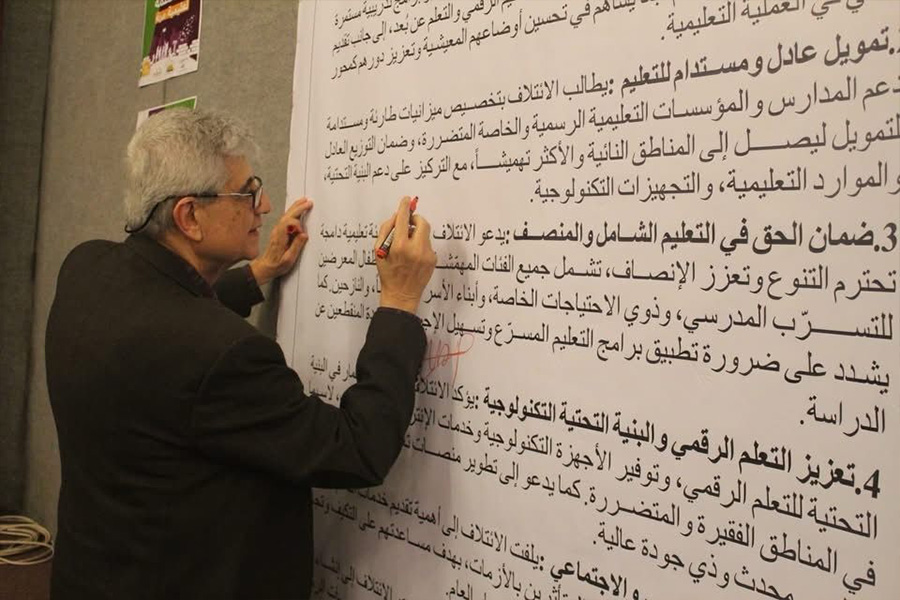 الرقمي والتعلم عن بُعد، إلى جانب تقديم
في تحسين أوضاعهم المعيشية وتعزيز دورهم كمحور
في العملية التعليمية.
تمويل عادل ومستدام للتعليم: يطالب الائتلاف بتخصيص ميزانيات طارئة ومستدامة
دعم المدارس والمؤسسات التعليمية الرسمية والخاصة المتضررة، وضمان التوزيع العادل
للتمويل ليصل إلى المناطق النائية والأكثر تهميشاً، مع التركيز على دعم البنية التحتية،
والموارد التعليمية، والتجهيزات التكنولوجية.
3.ضمان الحق في التعليم الشامل والمنصف: يدعو الائتلاف تعليمية دامجة
تحترم التنوع وتعزز الإنصاف، تشمل جميع الفئات المعرضين
للتسرّب المدرسي، وذوي الاحتياجات الخاصة، وأبناء الأسر والنازحين. كما
يشدد على ضرورة تطبيق برامج التعليم المسرّع وتسهيل المنقطعين عن
الدراسة.
4.تعزيز التعلم الرقمي والبنية التحتية التكنولوجية: يؤكد في البنية
التحتية للتعلم الرقمي، وتوفير الأجهزة التكنولوجية وخدمات لاسيما
في المناطق الفقيرة والمتضررة. كما يدعو إلى تطوير منصات
محدث وذي جودة عالية.
والاجتماعي: يلفت الائتلاف إلى أهمية تقديم خدمات
بالأزمات، بهدف مساعدتهم على التكيف
الائتلاف إلى
العام.